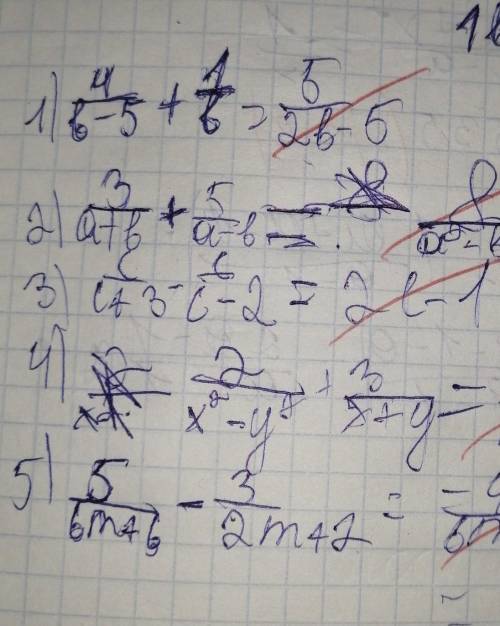 1) 4/(b-5) + 1/b = 5/(2b-5)
2) 3/(a+b) + 5/(a-b) = 8/(a²-b
3) c/(c+3) - c/(c-2) = 2c-1
4) 2/(x²-y²) + 3/(x+y) =
5) 5/(6m+6) - 3/(2m+2) =
=